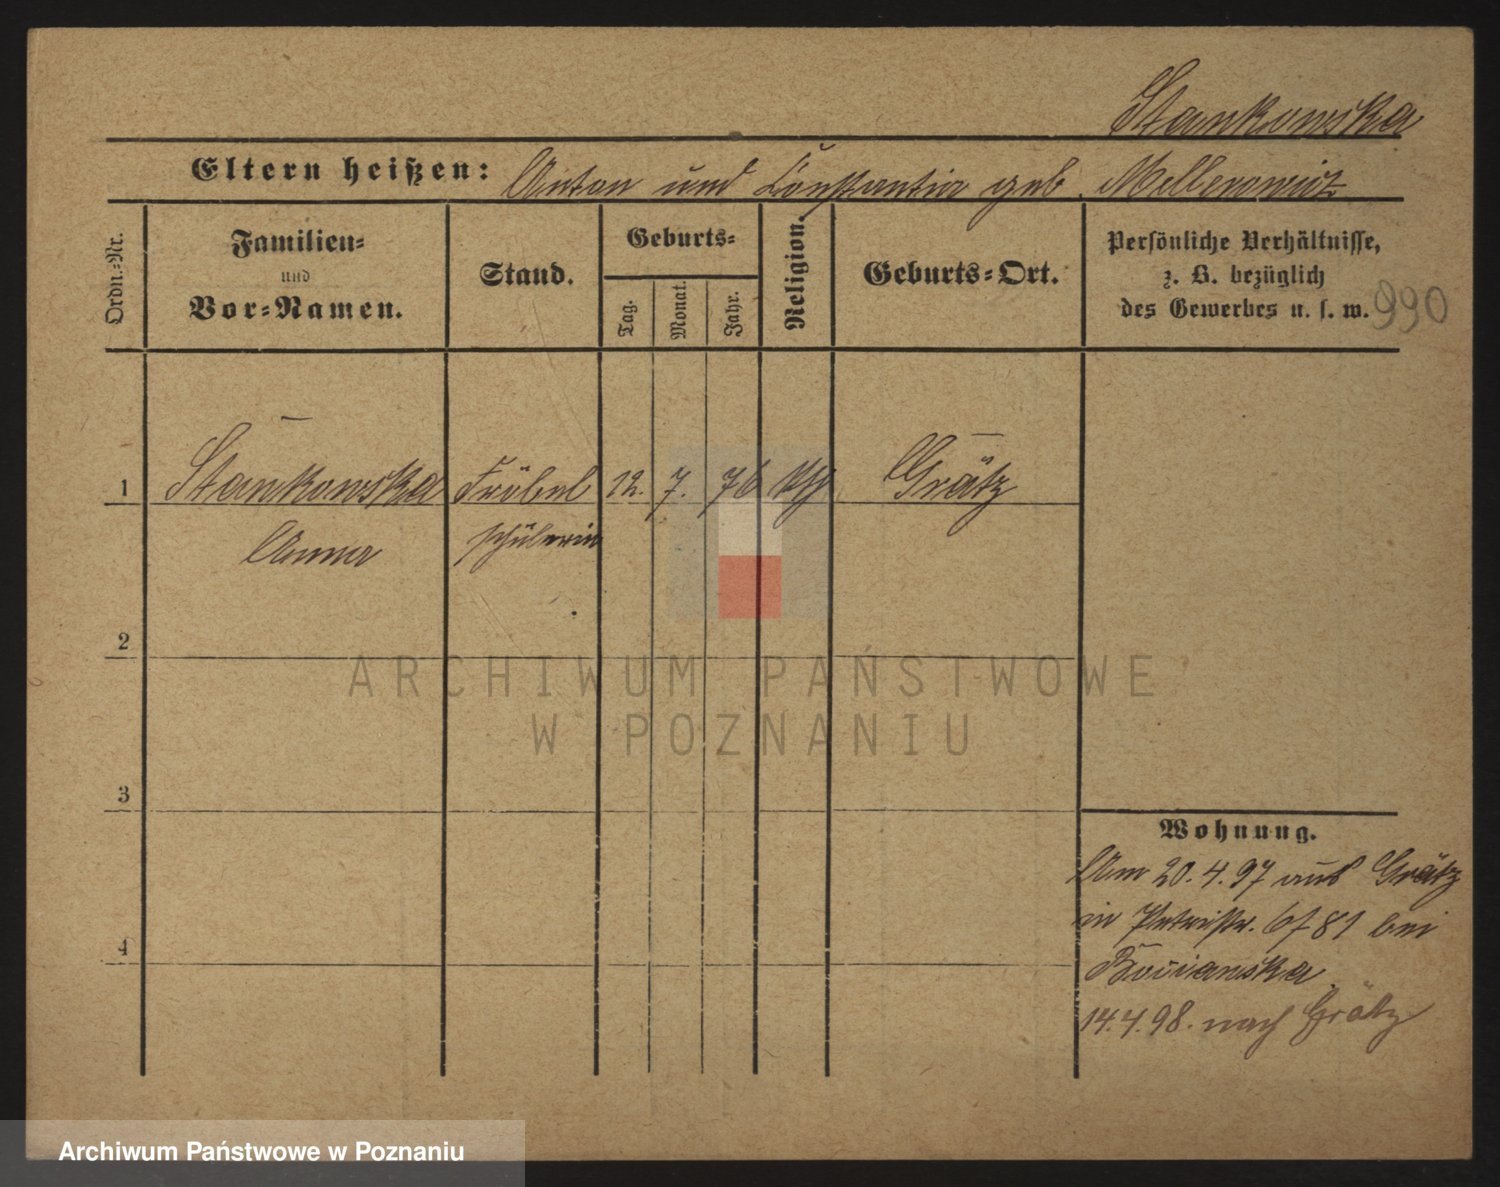 Stankowska
Eltern heißen: Anton und Constantia geb. Mellerowicz
Ordn.=Nr.
Familien=
und
Vor=Namen.
Stand.
Geburts=
Tag.
Monat.
Jahr.
Religion.
Geburts=Ort.
Persönliche Verhältnisse,
z. B. bezüglich
des Gewerbes u. s. w.
990
1 Stankowska Fröbel 12. 7. 76 kth Grätz
Anna schülerin
2
3
4
Wohnung.
Am 20.4.97 aus Grätz
in Petristr. 6/81 bei
Bocianska
14.4.98. nach Grätz
ARCHIWUM PAŃSTWOWE
W POZNANIU
Archiwum Państwowe w Poznaniu